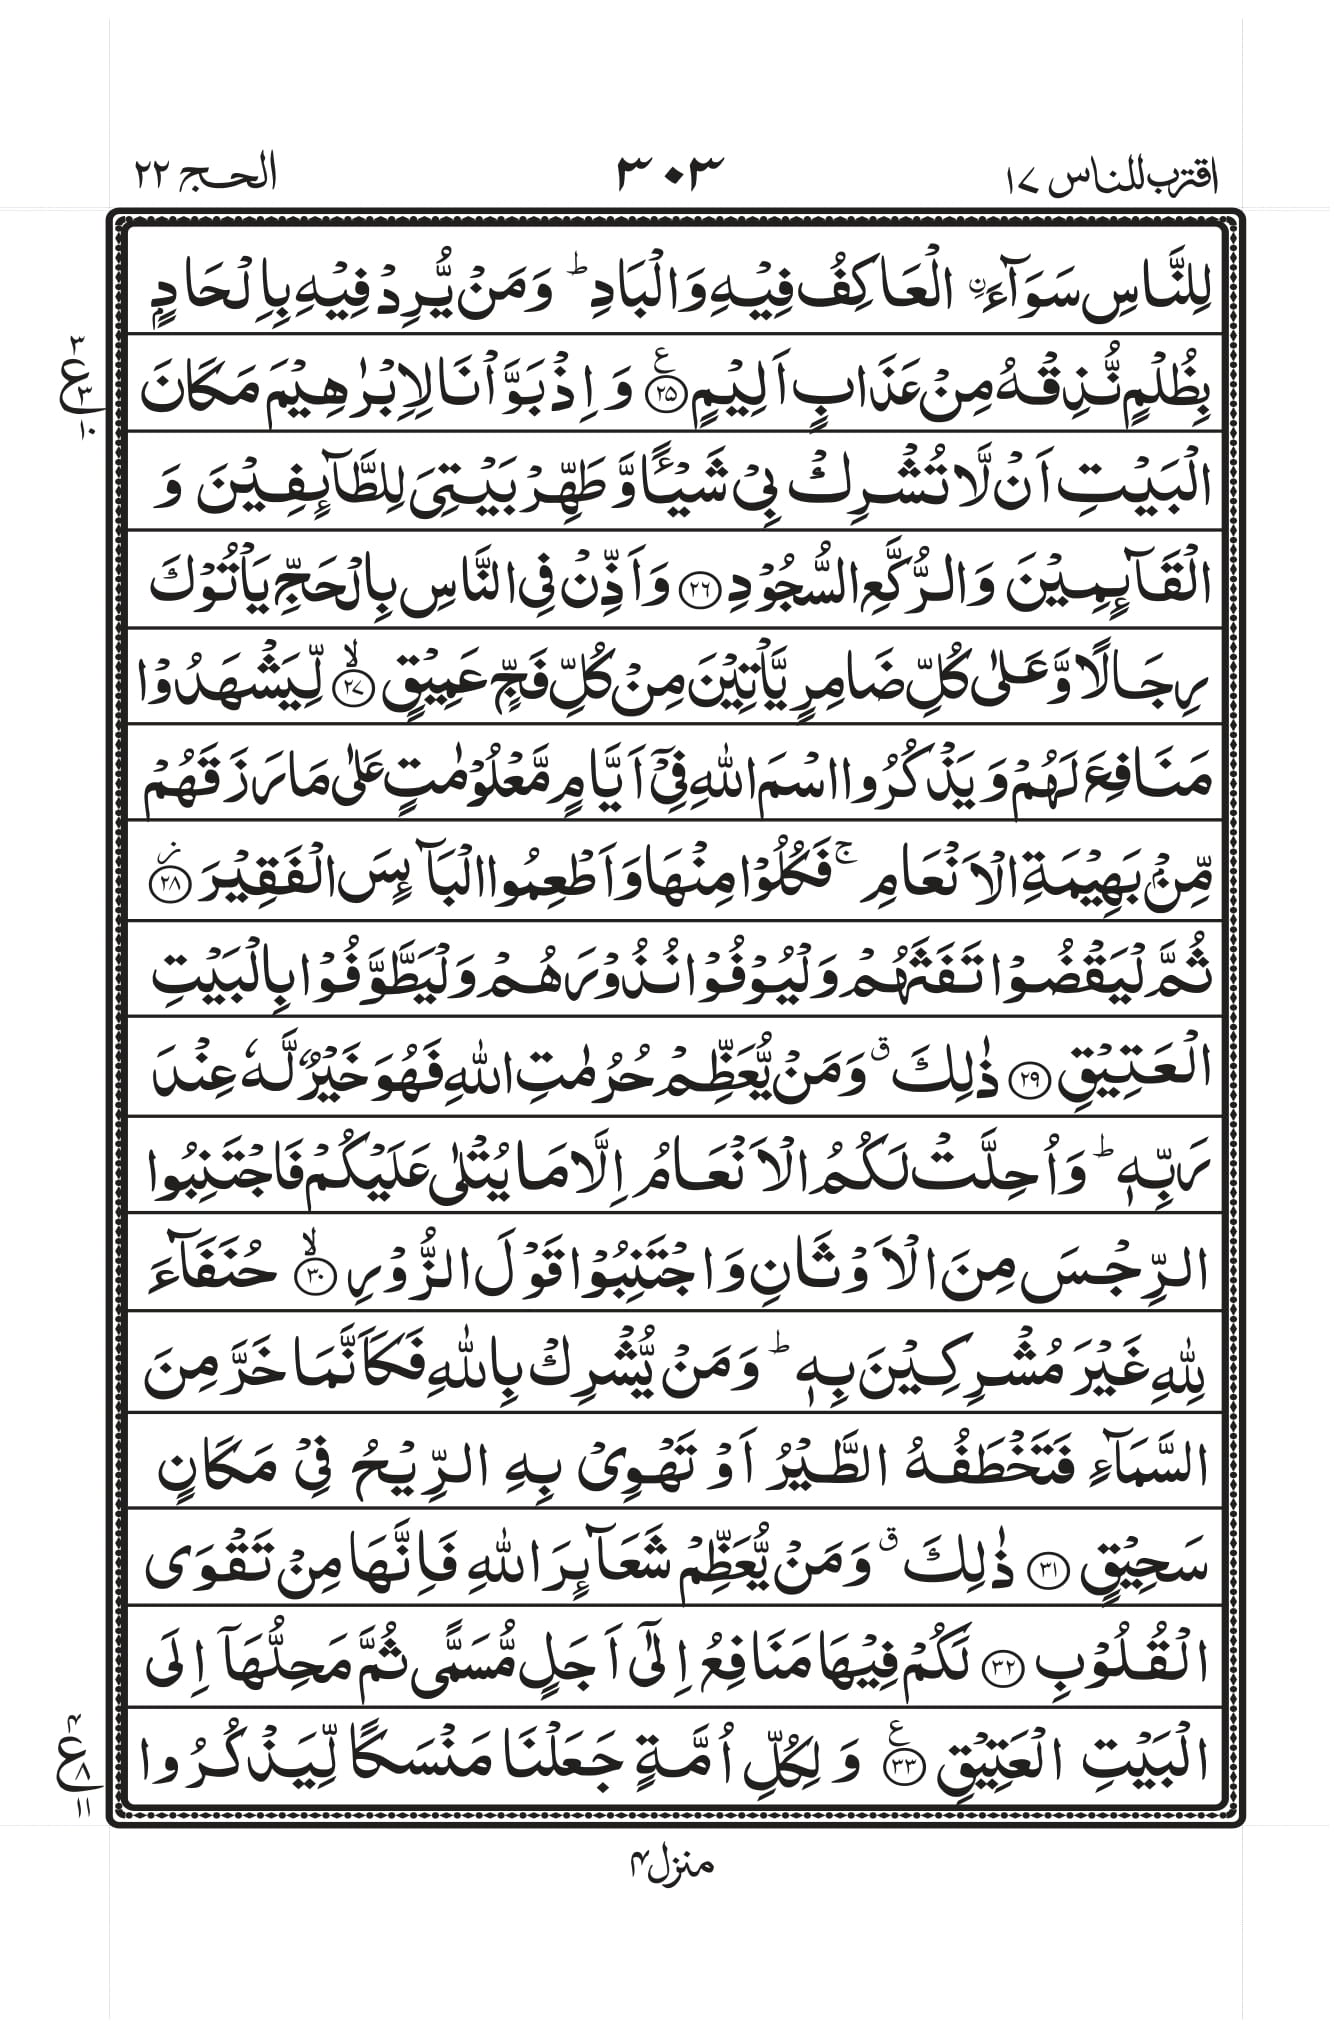 اقترب للناس ١٧
٣٠٣
الحج ٢٢
لِلنَّاسِ سَوَآءَ ۨ الْعَاكِفُ فِيْهِ وَالْبَادِ ؕ وَمَنْ يُّرِدْ فِيْهِ بِاِلْحَادٍۭ
بِظُلْمٍ نُّذِقْهُ مِنْ عَذَابٍ اَلِيْمٍ ﴿۲۵﴾ ع وَاِذْ بَوَّاْنَا لِاِبْرٰهِيْمَ مَكَانَ
٣ ع ٣ ١٠
الْبَيْتِ اَنْ لَّا تُشْرِكْ بِىْ شَيْـًٔا وَّطَهِّرْ بَيْتِىَ لِلطَّآئِفِيْنَ وَ
الْقَآئِمِيْنَ وَالرُّكَّعِ السُّجُوْدِ ﴿۲۶﴾ وَاَذِّنْ فِى النَّاسِ بِالْحَجِّ يَاْتُوْكَ
رِجَالًا وَّعَلٰى كُلِّ ضَامِرٍ يَّاْتِيْنَ مِنْ كُلِّ فَجٍّ عَمِيْقٍ ۙ﴿۲۷﴾ لِّيَشْهَدُوْا
مَنَافِعَ لَهُمْ وَيَذْكُرُوا اسْمَ اللّٰهِ فِىْۤ اَيَّامٍ مَّعْلُوْمٰتٍ عَلٰى مَا رَزَقَهُمْ
مِّنْۢ بَهِيْمَةِ الْاَنْعَامِ ۚ فَكُلُوْا مِنْهَا وَاَطْعِمُوا الْبَآئِسَ الْفَقِيْرَ ز ﴿۲۸﴾
ثُمَّ لْيَقْضُوْا تَفَثَهُمْ وَلْيُوْفُوْا نُذُوْرَهُمْ وَلْيَطَّوَّفُوْا بِالْبَيْتِ
الْعَتِيْقِ ﴿۲۹﴾ ذٰلِكَ ق وَمَنْ يُّعَظِّمْ حُرُمٰتِ اللّٰهِ فَهُوَ خَيْرٌ لَّهٗ عِنْدَ
رَبِّهٖ ؕ وَاُحِلَّتْ لَكُمُ الْاَنْعَامُ اِلَّا مَا يُتْلٰى عَلَيْكُمْ فَاجْتَنِبُوا
الرِّجْسَ مِنَ الْاَوْثَانِ وَاجْتَنِبُوْا قَوْلَ الزُّوْرِ ۙ﴿۳۰﴾ حُنَفَآءَ
لِلّٰهِ غَيْرَ مُشْرِكِيْنَ بِهٖ ؕ وَمَنْ يُّشْرِكْ بِاللّٰهِ فَكَاَنَّمَا خَرَّ مِنَ
السَّمَآءِ فَتَخْطَفُهُ الطَّيْرُ اَوْ تَهْوِىْ بِهِ الرِّيْحُ فِىْ مَكَانٍ
سَحِيْقٍ ﴿۳۱﴾ ذٰلِكَ ق وَمَنْ يُّعَظِّمْ شَعَآئِرَ اللّٰهِ فَاِنَّهَا مِنْ تَقْوَى
الْقُلُوْبِ ﴿۳۲﴾ لَكُمْ فِيْهَا مَنَافِعُ اِلٰٓى اَجَلٍ مُّسَمًّى ثُمَّ مَحِلُّهَاۤ اِلَى
الْبَيْتِ الْعَتِيْقِ ﴿۳۳﴾ ع وَلِكُلِّ اُمَّةٍ جَعَلْنَا مَنْسَكًا لِّيَذْكُرُوا
۴ ع ٨ ١١
منزل۴